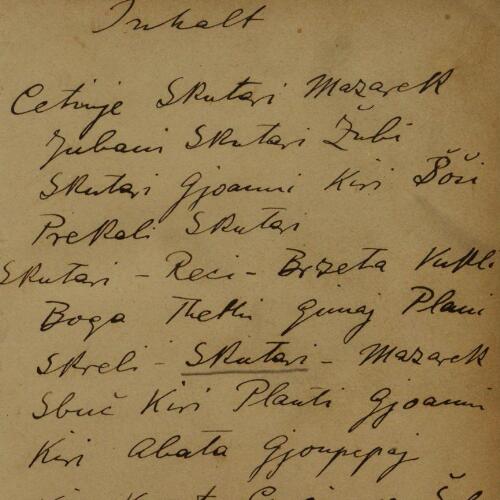 Inhalt
Cetinje Skutari Mazarek
Jubani Skutari Žubi
Skutari Gjoanni Kiri Šoši
Prekali Skutari
Skutari - Reci - Brzeta Vukli
Boga Thethi Gimaj Plani
Skreli - Skutari - Mazarek
Sbuč Kiri Planti Gjoanni
Kiri Abata Gjonpepaj